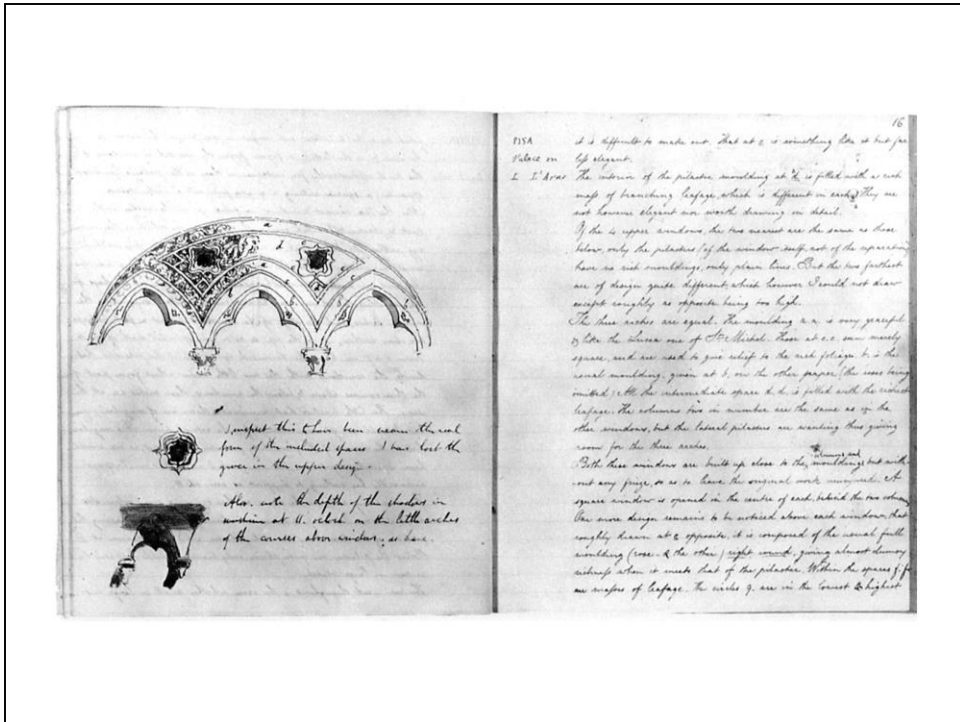 I suspect this to have been nearer the real
form of the included spaces I have lost the
grace in the upper design.
Also. note the depth of the shadows in
at 11. oclock on the little arches
of the courses above windows. as here.
16
PISA
Palace on
L. L'Arno
it is difficult to make out. That at e is something like it but far
less elegant.
The interior of the pilaster moulding at d is filled with a rich
mass of branching leafage, which is different in each. They are
not however elegant nor worth drawing in detail.
Of the 4 upper windows, the two nearest are the same as those
below, only the pilasters (of the window itself, not of the separation
have no rich mouldings, only plain lines. But the two farthest
are of design quite different, which however I could not draw
except roughly as opposite being too high.
The three arches are equal. The moulding a.a. is very graceful
& like the Lucca one of St. Michel. Those at c.c. are merely
square, and are used to give relief to the rich foliage, b. is the
usual moulding, given at b. on the other paper (the roses being
omitted) All the intermediate space d.d. is filled with the richest
leafage. The columns two in number are the same as in the
other windows, but the lateral pilasters are wanting thus giving
room for the three arches.
Both these windows are built up close to the columns and mouldings but with-
out any frieze, so as to leave the original work uninjured. A
square window is opened in the centre of each, behind the two columns
One more design remains to be noticed above each window, that
roughly drawn at opposite, it is composed of the usual full
moulding (rose. & the other) right round, giving almost
richness when it meets that of the pilaster. Within the spaces f. f
are masses of leafage. The circles g. are in the lowest & highest